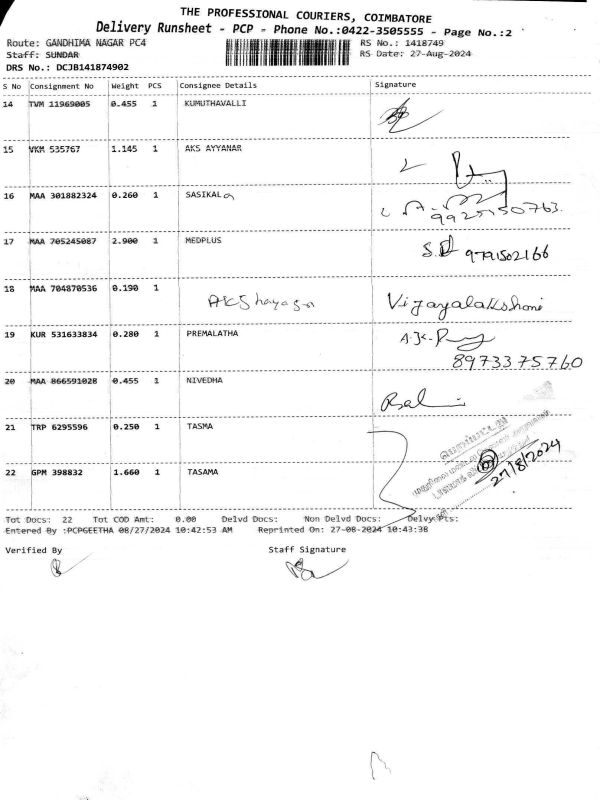 THE PROFESSIONAL COURIERS, COIMBATORE
Delivery Runsheet - PCP - Phone No.:0422-3505555 - Page No.:2
Route: GANDHIMA NAGAR PC4 RS No.: 1418749
Staff: SUNDAR RS Date: 27-Aug-2024
DRS No.: DCJB141874902
S No Consignment No Weight PCS Consignee Details Signature
14 TVM 11969005 0.455 1 KUMUTHAVALLI
15 VKM 535767 1.145 1 AKS AYYANAR
16 MAA 301882324 0.260 1 SASIKALA
9925150763.
17 MAA 705245087 2.900 1 MEDPLUS 9791502166
18 MAA 704870536 0.190 1 Vijayalakshmi
19 KUR 531633834 0.280 1 PREMALATHA
8973375760
20 MAA 866591028 0.455 1 NIVEDHA
21 TRP 6295596 0.250 1 TASMA
22 GPM 398832 1.660 1 TASAMA 27/8/2024
Tot Docs: 22 Tot COD Amt: 0.00 Delvd Docs: Non Delvd Docs: Delvy Pts:
Entered By :PCPGEETHA 08/27/2024 10:42:53 AM Reprinted On: 27-08-2024 10:43:38
Verified By Staff Signature